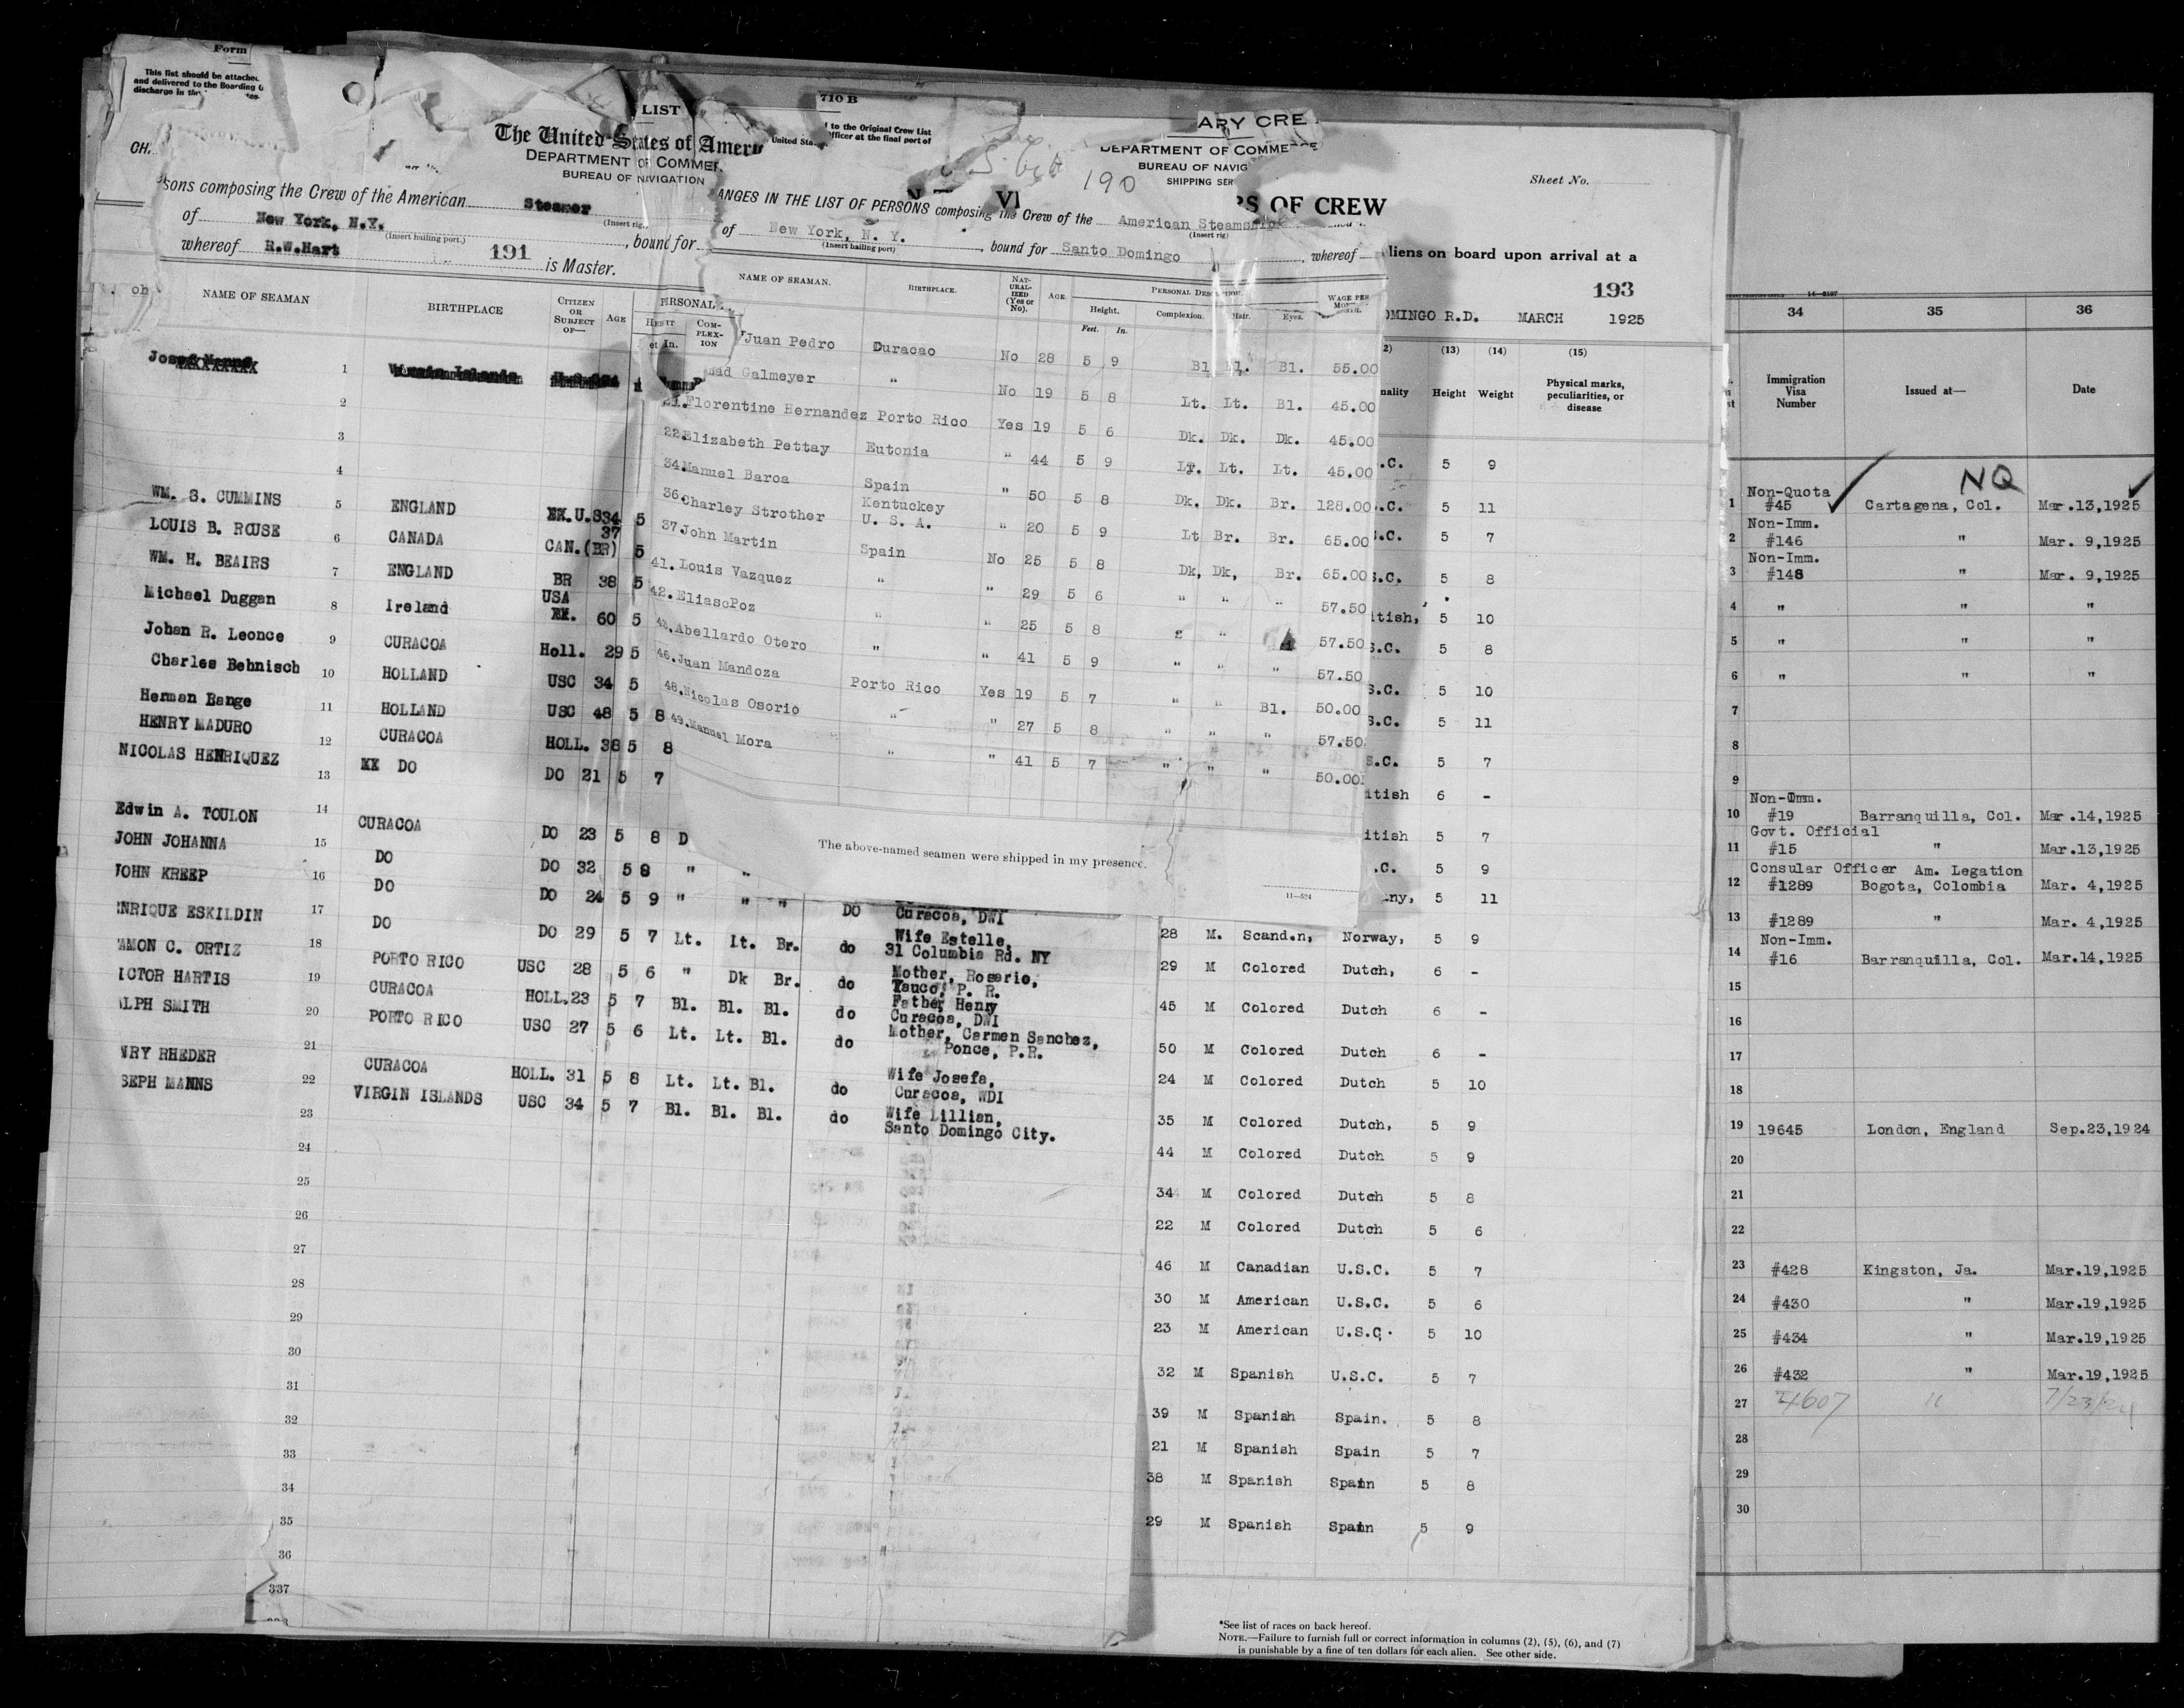 Form
This list should be attached
and delivered to the Boarding O
discharge in th
tes-
LIST
The United States of Amer
DEPARTMENT OF COMMER
BUREAU OF NAVIGATION
CH
sons composing the Crew of the American Steamer
(Insert rig,
of New York, N.Y.
(Insert hailing port.)
, bound for
whereof R.W.Hart 191 is Master.
NAME OF SEAMAN BIRTHPLACE CITIZEN OR SUBJECT OF— AGE PERSONAL
et In. COM-PLEX-ION
1
2
3
4
WM. S. CUMMINS 5 ENGLAND U.S 34 5
LOUIS B. ROUSE 6 CANADA CAN.(BR) 37 5
WM. H. BEAIRS 7 ENGLAND BR 38 5
Michael Duggan 8 Ireland USA 60 5
Johan R. Leonce 9 CURACOA Holl. 29 5
Charles Behnisch 10 HOLLAND USC 34 5
Herman Bange 11 HOLLAND USC 48 5 8
HENRY MADURO 12 CURACOA HOLL. 38 5 8
NICOLAS HENRIQUEZ 13 DO DO 21 5 7
Edwin A. TOULON 14 CURACOA DO 23 5 8 D
JOHN JOHANNA 15 DO DO 32 5 8 "
JOHN KREEP 16 DO DO 24 5 9 " " " DO Curacoa, DWI
ENRIQUE ESKILDIN 17 DO DO 29 5 7 Lt. Lt. Br. do Wife Estelle,
31 Columbia Rd. NY
AMON C. ORTIZ 18 PORTO RICO USC 28 5 6 " Dk Br. do Mother, Rosario,
Yauco, P. R.
ICTOR HARTIS 19 CURACOA HOLL. 23 5 7 Bl. Bl. Bl. do Father, Henry
Curacoa, DWI
LPH SMITH 20 PORTO RICO USC 27 5 6 Lt. Lt. Bl. do Mother, Carmen Sanchez,
Ponce, P.R.
21
NRY RHEDER 22 CURACOA HOLL. 31 5 8 Lt. Lt. Bl. do Wife Josefa,
Curacoa, WDI
SEPH MANNS 23 VIRGIN ISLANDS USC 34 5 7 Bl. Bl. Bl. do Wife Lillian,
Santo Domingo City.
24
25
26
27
28
29
30
31
32
33
34
35
36
337
710 B
d to the Original Crew List
Officer at the final port of
United Sta
190
ARY CRE
DEPARTMENT OF COMMERCE
BUREAU OF NAVIG
SHIPPING SER
ANGES IN THE LIST OF PERSONS composing the Crew of the American Steamship
(Insert rig)
of New York, N. Y.
(Insert hailing port)
, bound for Santo Domingo , whereof
NAME OF SEAMAN. BIRTHPLACE. NAT-URAL-IZED (Yes or No). AGE. PERSONAL DESCRIPTION. WAGE PER MONTH.
Height. Feet. In. Complexion. Hair. Eyes.
Juan Pedro Curacao No 28 5 9 Bl Bl. Bl. 55.00
Galmeyer " No 19 5 8 Lt. Lt. Bl. 45.00
21. Florentine Hernandez Porto Rico Yes 19 5 6 Dk. Dk. Dk. 45.00
22. Elizabeth Pettay Eutonia " 44 5 9 Lt. Lt. Lt. 45.00
34. Manuel Baroa Spain " 50 5 8 Dk. Dk. Br. 128.00
36. Charley Strother Kentuckey U. S. A. " 20 5 9 Lt Br. Br. 65.00
37 John Martin Spain No 25 5 8 Dk, Dk, Br. 65.00
41. Louis Vazquez " " 29 5 6 " " " 57.50
42. EliascPoz " " 25 5 8 " 57.50
43. Abellardo Otero " " 41 5 9 " " " 57.50
46. Juan Mandoza Porto Rico Yes 19 5 7 " " Bl. 50.00
48. Nicolas Osorio " " 27 5 8 " " " 57.50
49. Manuel Mora " " 41 5 7 " " " 50.00
The above-named seamen were shipped in my presence.
11—524
Sheet No.
S OF CREW
liens on board upon arrival at a
193
OMINGO R.D. MARCH 1925
2) (13) (14) (15)
nality Height Weight Physical marks, peculiarities, or disease
.C. 5 9
.C. 5 11
S.C. 5 7
S.C. 5 8
itish, 5 10
S.C. 5 8
S.C. 5 10
S.C. 5 11
S.C. 5 7
itish 6 -
itish 5 7
.C. 5 9
ny, 5 11
28 M. Scandn, Norway, 5 9
29 M Colored Dutch, 6 -
45 M Colored Dutch 6 -
50 M Colored Dutch 6 -
24 M Colored Dutch 5 10
35 M Colored Dutch, 5 9
44 M Colored Dutch 5 9
34 M Colored Dutch 5 8
22 M Colored Dutch 5 6
46 M Canadian U.S.C. 5 7
30 M American U.S.C. 5 6
23 M American U.S.C. 5 10
32 M Spanish U.S.C. 5 7
39 M Spanish Spain. 5 8
21 M Spanish Spain 5 7
38 M Spanish Spain 5 8
29 M Spanish Spain 5 9
*See list of races on back hereof.
NOTE.—Failure to furnish full or correct information in columns (2), (5), (6), and (7)
is punishable by a fine of ten dollars for each alien. See other side.
34 35 36
Immigration Visa Number Issued at— Date
NQ
Non-Quota
1 #45 Cartagena, Col. Mar.13,1925
Non-Imm.
2 #146 " Mar. 9,1925
Non-Imm.
3 #148 " Mar. 9,1925
4 " " "
5 " " "
6 " " "
7
8
9
Non-Imm.
10 #19 Barranquilla, Col. Mar.14,1925
Govt. Official
11 #15 " Mar.13,1925
Consular Officer Am. Legation
12 #1289 Bogota, Colombia Mar. 4,1925
13 #1289 " Mar. 4,1925
Non-Imm.
14 #16 Barranquilla, Col. Mar.14,1925
15
16
17
18
19 19645 London, England Sep.23,1924
20
21
22
23 #428 Kingston, Ja. Mar.19,1925
24 #430 " Mar.19,1925
25 #434 " Mar.19,1925
26 #432 " Mar.19,1925
27 " 7/23/24
28
29
30